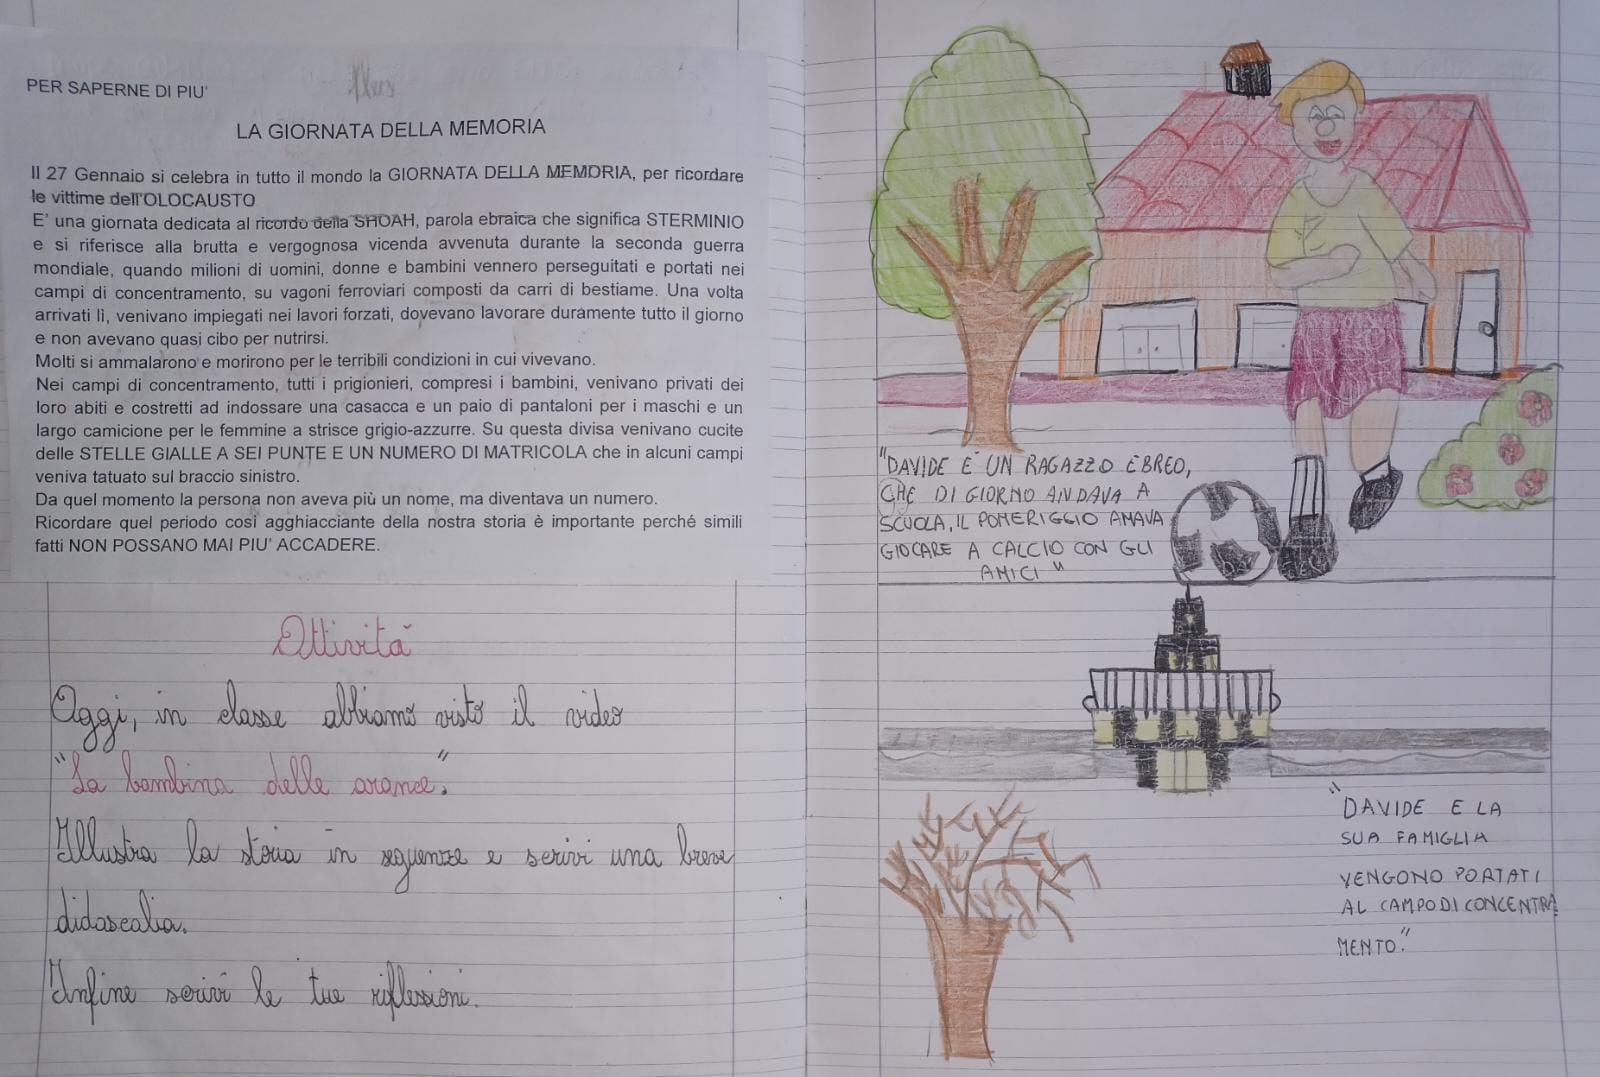 PER SAPERNE DI PIU'
LA GIORNATA DELLA MEMORIA
Il 27 Gennaio si celebra in tutto il mondo la GIORNATA DELLA MEMORIA, per ricordare
le vittime dell'OLOCAUSTO
E' una giornata dedicata al ricordo della SHOAH, parola ebraica che significa STERMINIO
e si riferisce alla brutta e vergognosa vicenda avvenuta durante la seconda guerra
mondiale, quando milioni di uomini, donne e bambini vennero perseguitati e portati nei
campi di concentramento, su vagoni ferroviari composti da carri di bestiame. Una volta
arrivati lì, venivano impiegati nei lavori forzati, dovevano lavorare duramente tutto il giorno
e non avevano quasi cibo per nutrirsi.
Molti si ammalarono e morirono per le terribili condizioni in cui vivevano.
Nei campi di concentramento, tutti i prigionieri, compresi i bambini, venivano privati dei
loro abiti e costretti ad indossare una casacca e un paio di pantaloni per i maschi e un
largo camicione per le femmine a strisce grigio-azzurre. Su questa divisa venivano cucite
delle STELLE GIALLE A SEI PUNTE E UN NUMERO DI MATRICOLA che in alcuni campi
veniva tatuato sul braccio sinistro.
Da quel momento la persona non aveva più un nome, ma diventava un numero.
Ricordare quel periodo così agghiacciante della nostra storia è importante perché simili
fatti NON POSSANO MAI PIU' ACCADERE.
Attività
Oggi, in classe abbiamo visto il video
"La bambina delle arance".
Illustra la storia in sequenze e scrivi una breve
didascalia.
Infine scrivi le tue riflessioni.
"DAVIDE E' UN RAGAZZO EBREO,
CHE DI GIORNO ANDAVA A
SCUOLA, IL POMERIGGIO AMAVA
GIOCARE A CALCIO CON GLI
AMICI"
"DAVIDE E LA
SUA FAMIGLIA
VENGONO PORTATI
AL CAMPO DI CONCENTRA
MENTO."